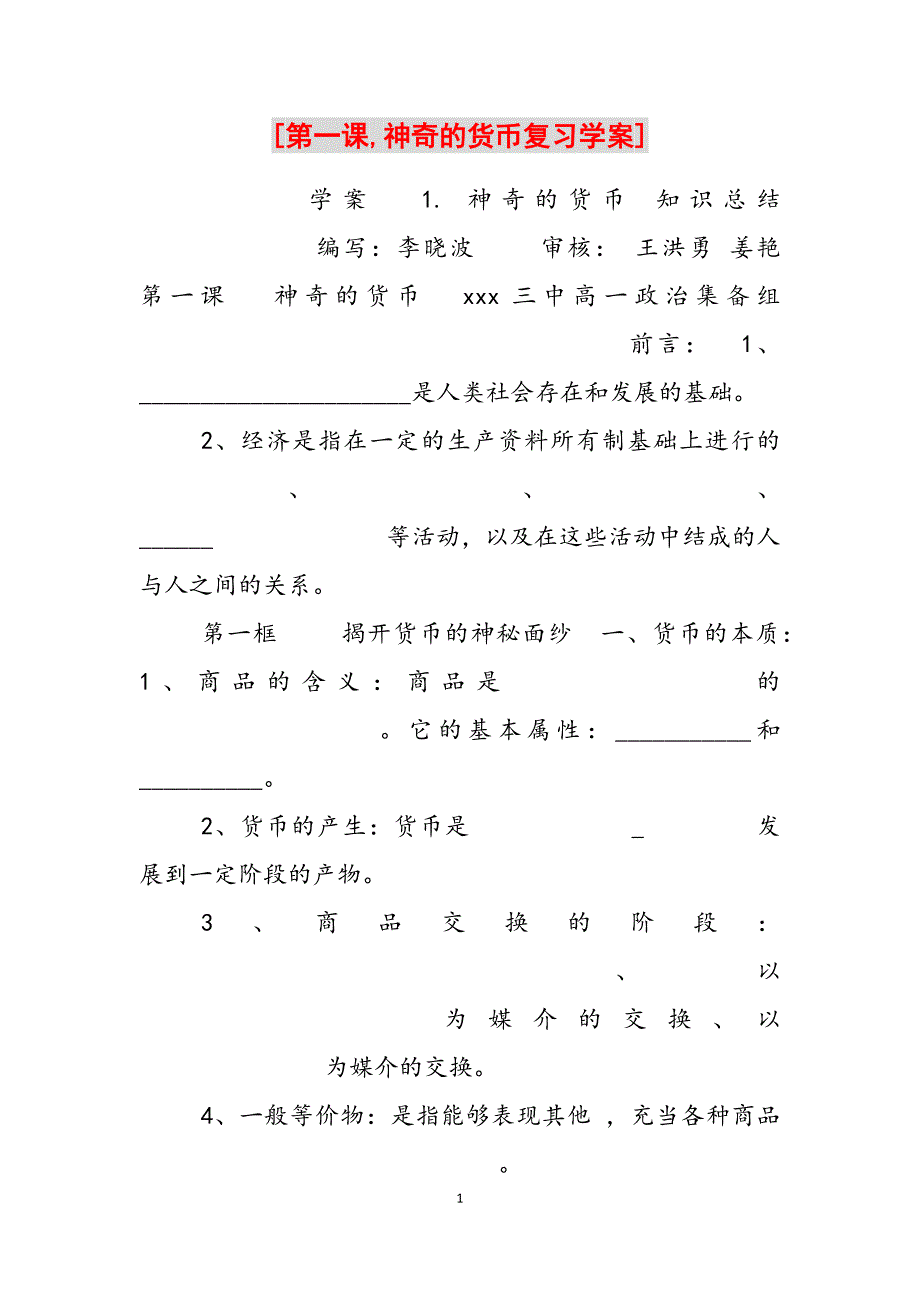 [第一课,神奇的货币复习学案]
学案 1. 神奇的货币 知识总结
编写：李晓波 审核： 王洪勇 姜艳
第一课 神奇的货币 xxx三中高一政治集备组
前言： 1、
______________________是人类社会存在和发展的基础。
2、经济是指在一定的生产资料所有制基础上进行的
、 、 、
______ 等活动，以及在这些活动中结成的人
与人之间的关系。
第一框 揭开货币的神秘面纱 一、货币的本质：
1、商品的含义：商品是 的
。它的基本属性：___________和
__________。
2、货币的产生：货币是 _ 发
展到一定阶段的产物。
3、商品交换的阶段：
、 以
为媒介的交换、以
为媒介的交换。
4、一般等价物：是指能够表现其他 ，充当各种商品
。
1